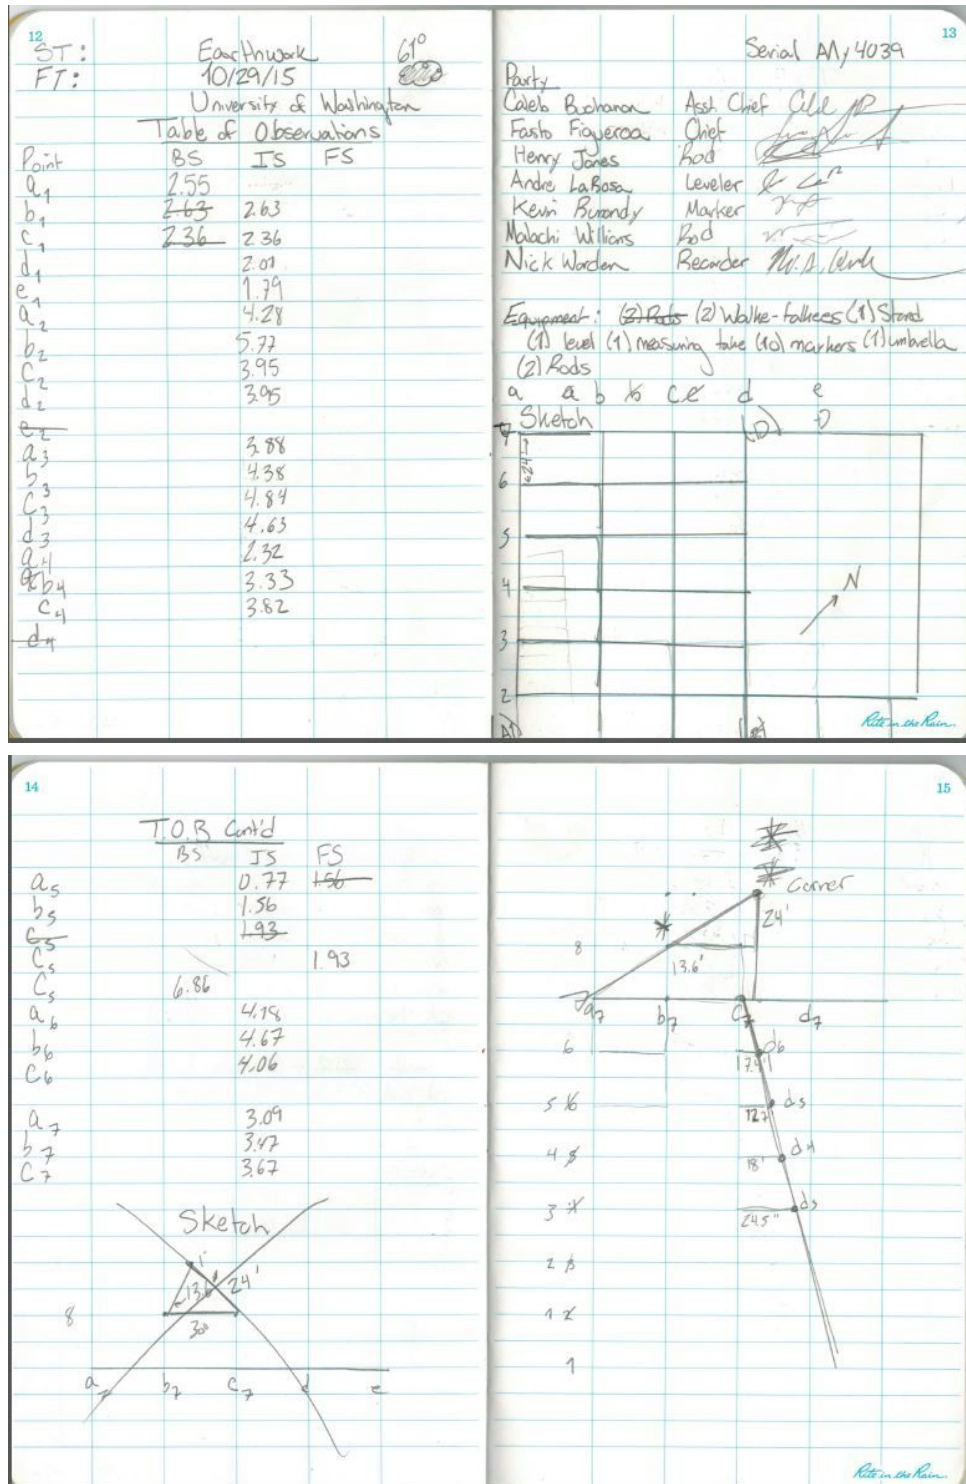 12
ST: Earthwork 61°
FT: 10/29/15
University of Washington
Table of Observations
Point BS IS FS
a1 2.55
b1 2.63 2.63
c1 2.36 2.36
d1 2.01
e1 1.79
a2 4.28
b2 5.77
c2 3.95
d2 3.95
e2
a3 3.88
b3 4.38
c3 4.84
d3 4.63
a4 2.32
b4 3.33
c4 3.82
d4
13
Serial AAy 4039
Party
Caleb Buchanan Asst. Chief
Fasto Figueroa Chief
Henry Jones Rod
Andre LaRosa Leveler
Kevin Burondy Marker
Malachi Willians Rod
Nick Worden Recorder
Equipment: (2) Rods (2) Walke-talkees (1) Stand
(1) level (1) measuring take (10) markers (1) umbrella
(2) Rods
a a b b c c d e
Sketch (D) D
7
6
5
4 N
3
2
Rite in the Rain
14
T.O.B Cont'd
BS IS FS
a5 0.77 1.56
b5 1.56
c5 1.93
c5 1.93
c5 6.86
a6 4.18
b6 4.67
c6 4.06
a7 3.09
b7 3.47
c7 3.67
Sketch
1'
13.6' 24'
8
30°
a7 b7 c7 d e
15
Corner
24'
8
13.6'
a7 b7 c7 d7
6 d6
7.4'
5 6 d5
12.7
4 5 d4
18'
3 d3
24.5"
2
1 2
1
Rite in the Rain